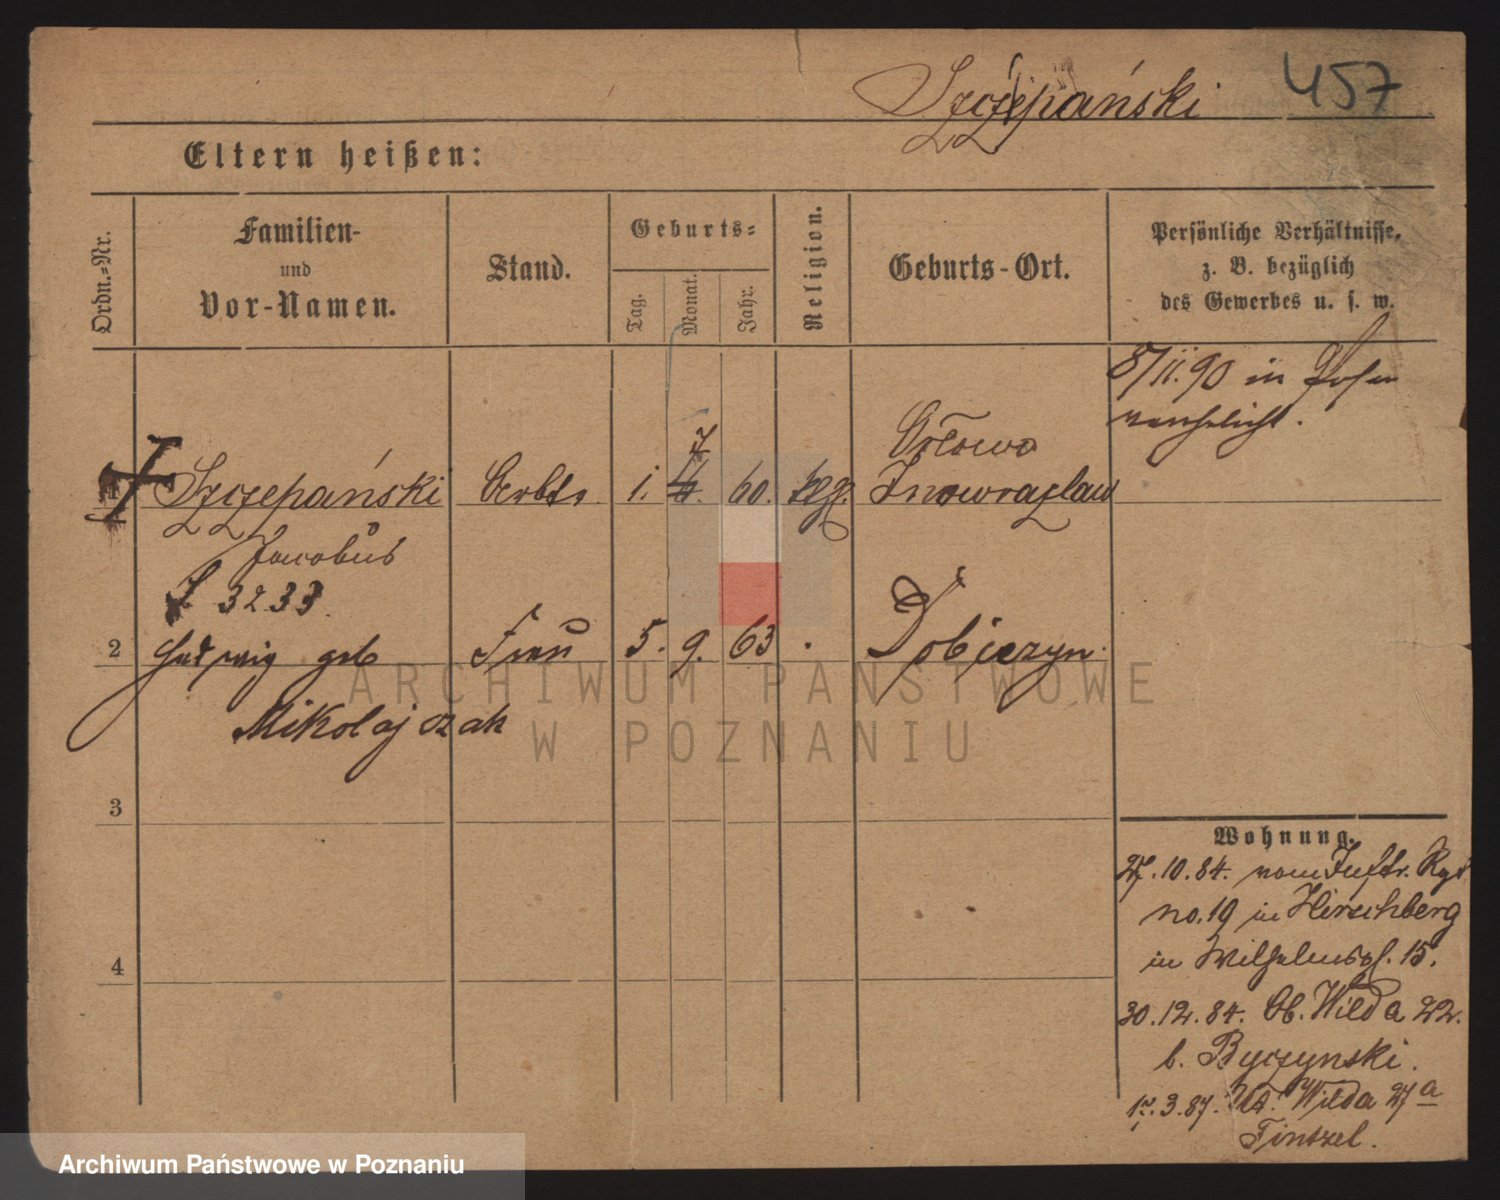 Szczepański 457
Eltern heißen:
Ordn.-Nr.
Familien-
und
Vor-Namen.
Stand.
Geburts-
Tag.
Monat.
Jahr.
Religion.
Geburts-Ort.
Persönliche Verhältnisse,
z. B. bezüglich
des Gewerbes u. s. w.
8/11.90 in Posen
verehelicht.
1 Szczepański Arbtr. 1. 7 60. kgl. Orłowo
Inowrazlaw
Jacobus
3233.
2 Hedwig geb Frau 5. 9. 63 Dobiezyn.
Mikolajczak
3
4
Wohnung.
27.10.84. vom Inftr. Rgt
no. 19 in Hirschberg
in Wilhelmspl. 15.
30.12.84. Ob. Wilda 22.
b. Byczynski.
17.3.87. Ut. Wilda 27a
Tintzel.
ARCHIWUM PAŃSTWOWE
W POZNANIU
Archiwum Państwowe w Poznaniu